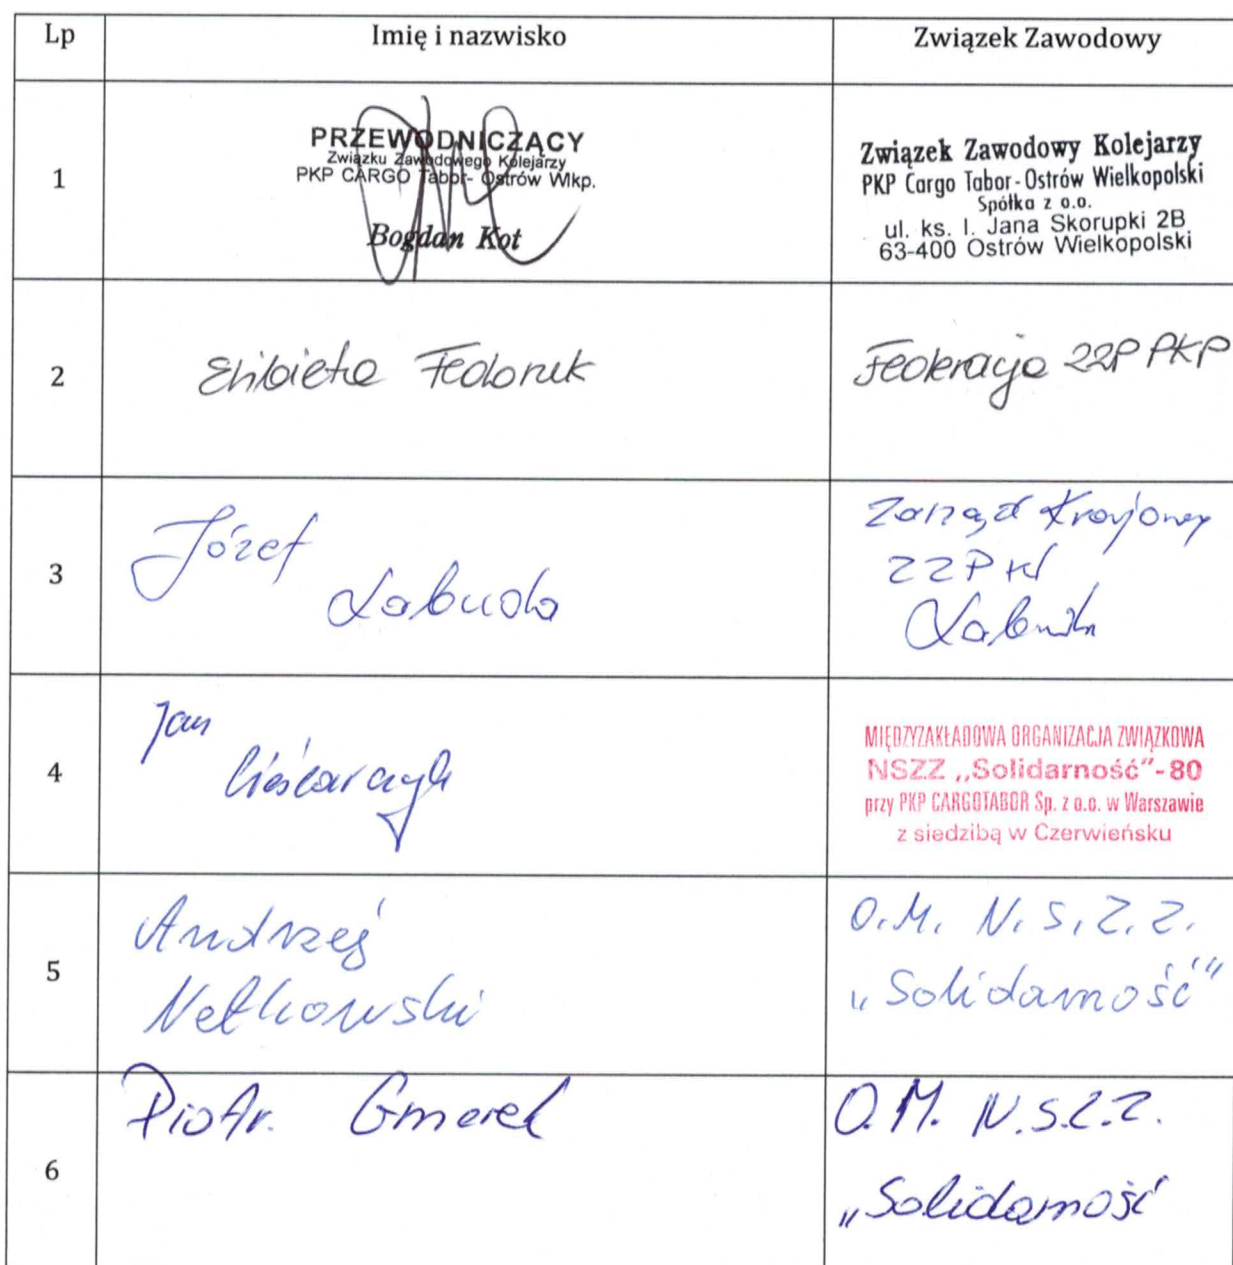 Lp Imię i nazwisko Związek Zawodowy
1
PRZEWODNICZĄCY
Związku Zawodowego Kolejarzy
PKP CARGO Tabor- Ostrów Wlkp.
Bogdan Kot
Związek Zawodowy Kolejarzy
PKP Cargo Tabor-Ostrów Wielkopolski
Spółka z o.o.
ul. ks. I. Jana Skorupki 2B
63-400 Ostrów Wielkopolski
2
Elżbieta Fedoruk
Federacja ZZP PKP
3
Józef
Łabuda
Zarząd Krajowy
ZZP
Łabuda
4
Jan
MIĘDZYZAKŁADOWA ORGANIZACJA ZWIĄZKOWA
NSZZ „Solidarność"-80
przy PKP CARGOTABOR Sp. z o.o. w Warszawie
z siedzibą w Czerwieńsku
5
Andrzej
Netkowski
O.M. N.S.Z.Z.
„Solidarność"
6
Piotr. Gmerek
O.M. N.S.Z.Z.
„Solidarność